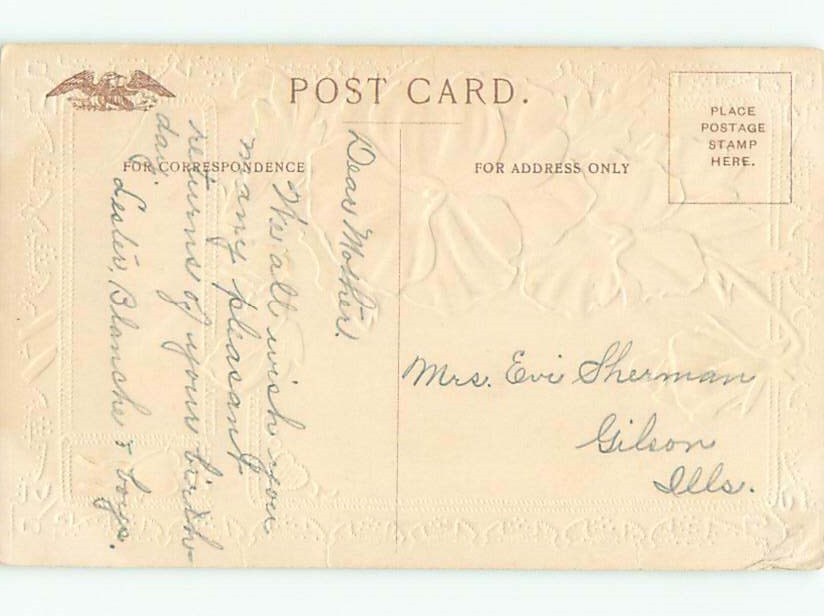 POST CARD.
PLACE
POSTAGE
STAMP
HERE.
FOR CORRESPONDENCE
FOR ADDRESS ONLY
Dear Mother!
We all wish you
many pleasant
returns of your birth-
day.
Lester, Blanche & boys.
Mrs. Evi Sherman
Gilson
Ills.